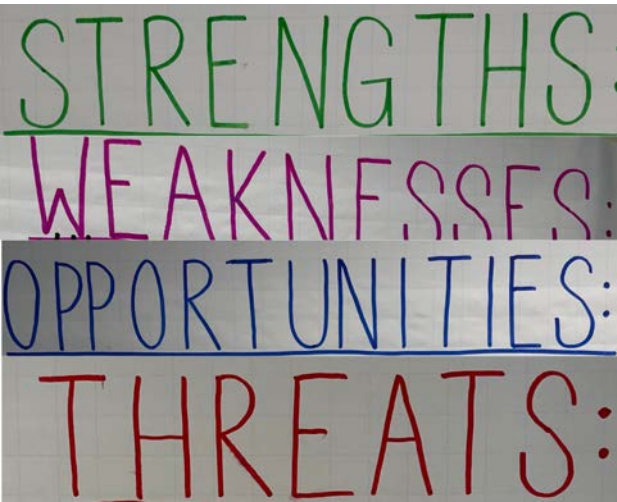 STRENGTHS:
WEAKNESSES:
OPPORTUNITIES:
THREATS: